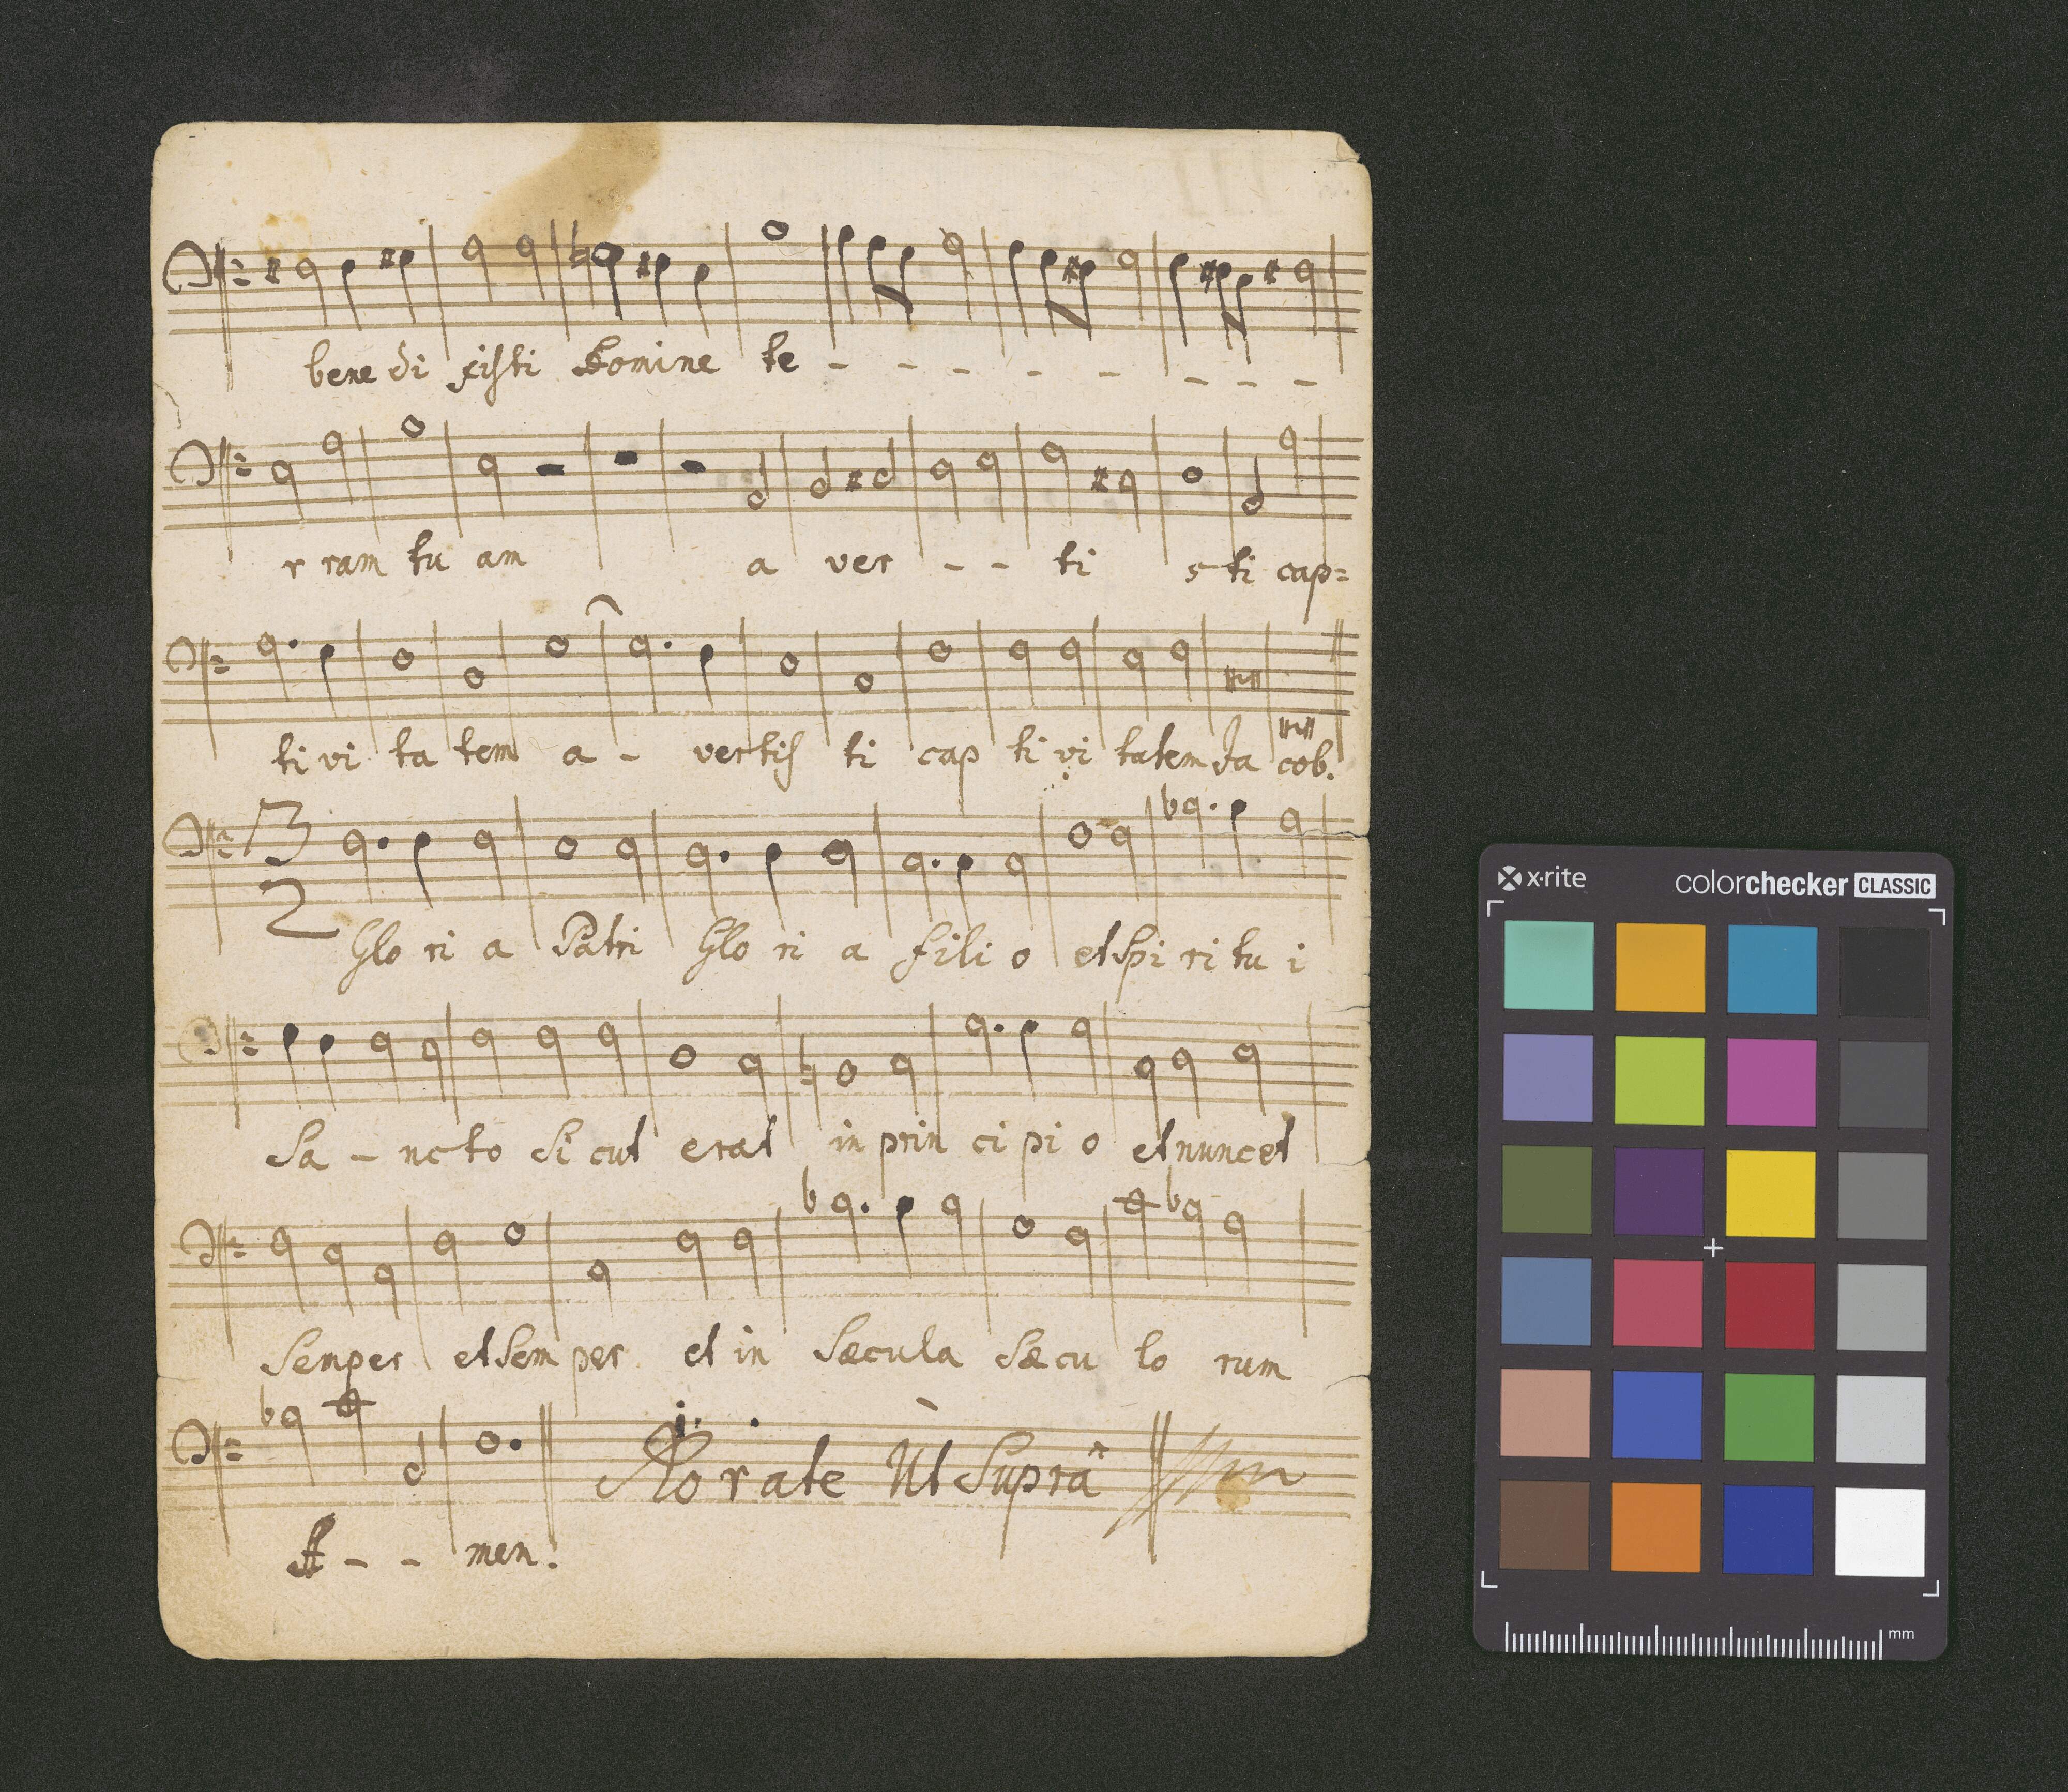 bene di xisti Domine te - - - - - - - -
r ram tu am a ver - - ti s ti cap=
ti vi ta tem a - vertis ti cap ti vi tatem Ja cob.
3
2
Glo ri a Patri Glo ri a fili o et Spi ri tu i
Sa - nc to Si cut erat in prin ci pi o et nunc et
Semper et Sem per et in Sæcula Sæ cu lo rum
Rorate Ut Suprâ
A - - men.
x·rite colorchecker CLASSIC
mm